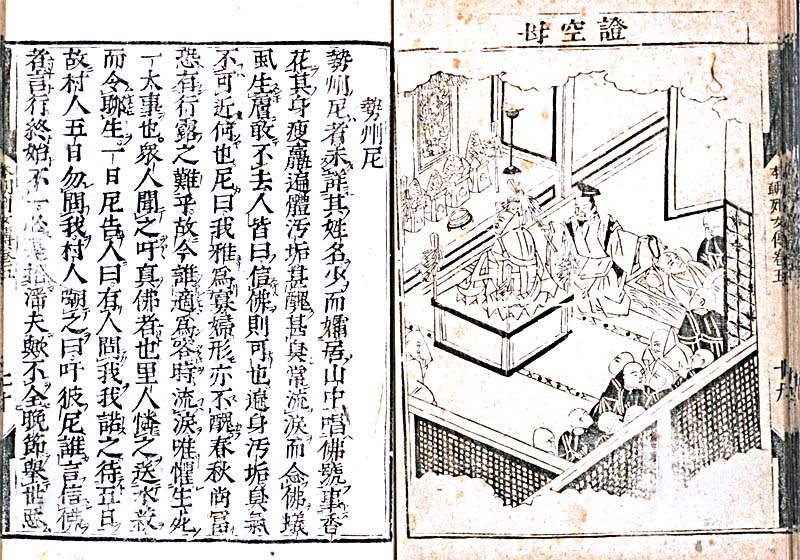 證空母
本朝列女傳卷五
十九
勢州尼
勢州尼者未詳其姓名少而孀居山中唱佛號事香
花其身瘦羸遍體汚垢甚醜甚臭常流淚而念佛蟻
虱生層敢不去人皆曰信佛則可也遍身汚垢臭氣
不可近何也尼曰我雅爲寡婦形亦不醜春秋尚富
恐有行露之難乎故今誰適爲容時流淚唯懼生死
一大事也衆人聞之吁真佛者也里人憐之送衣穀
而令聊生一日尼告人曰有人問我我諾之待五日
故村人五日勿問我村人嘲之曰吁彼尼誰言信佛
者言行終始不一 潛夫歎不全晚節舉世